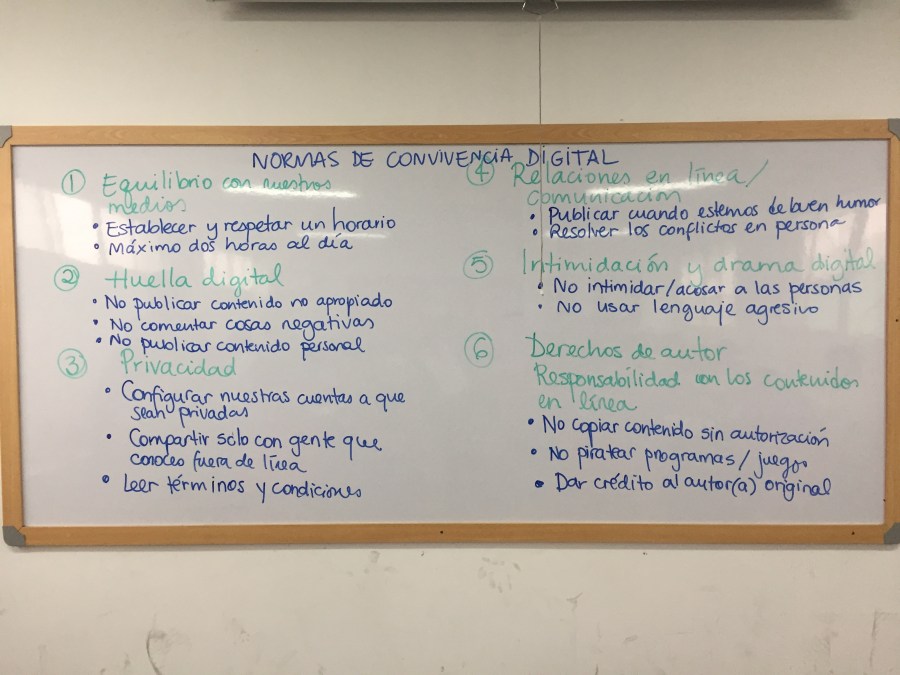 NORMAS DE CONVIVENCIA DIGITAL
① Equilibrio con nuestros
medios
• Establecer y respetar un horario
• Máximo dos horas al día
② Huella digital
• No publicar contenido no apropiado
• No comentar cosas negativas
• No publicar contenido personal
③ Privacidad
• Configurar nuestras cuentas a que
sean privadas
• Compartir solo con gente que
conoces fuera de línea
• Leer términos y condiciones
④ Relaciones en línea/
comunicación
• Publicar cuando estemos de buen humor
• Resolver los conflictos en persona
⑤ Intimidación y drama digital
• No intimidar/acosar a las personas
• No usar lenguaje agresivo
⑥ Derechos de autor
Responsabilidad con los contenidos
en línea
• No copiar contenido sin autorización
• No piratear programas/juegos
• Dar crédito al autor(a) original